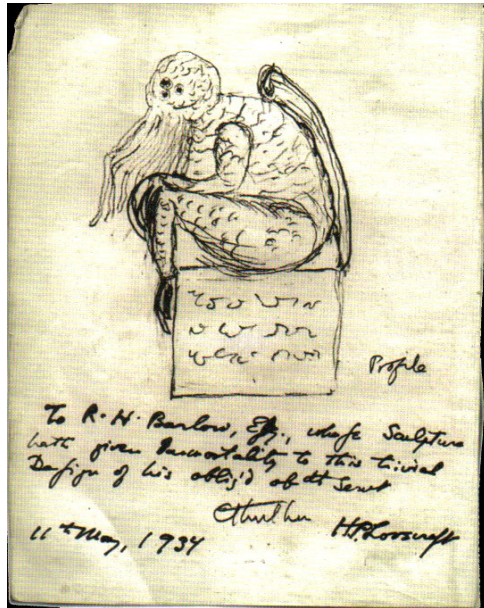 Profile
To R. H. Barlow, Esq., whose Sculpture
hath given Immortality to this trivial
Design of his oblig'd obdt Servt
Cthulhu
H P Lovecraft
11th May, 1934